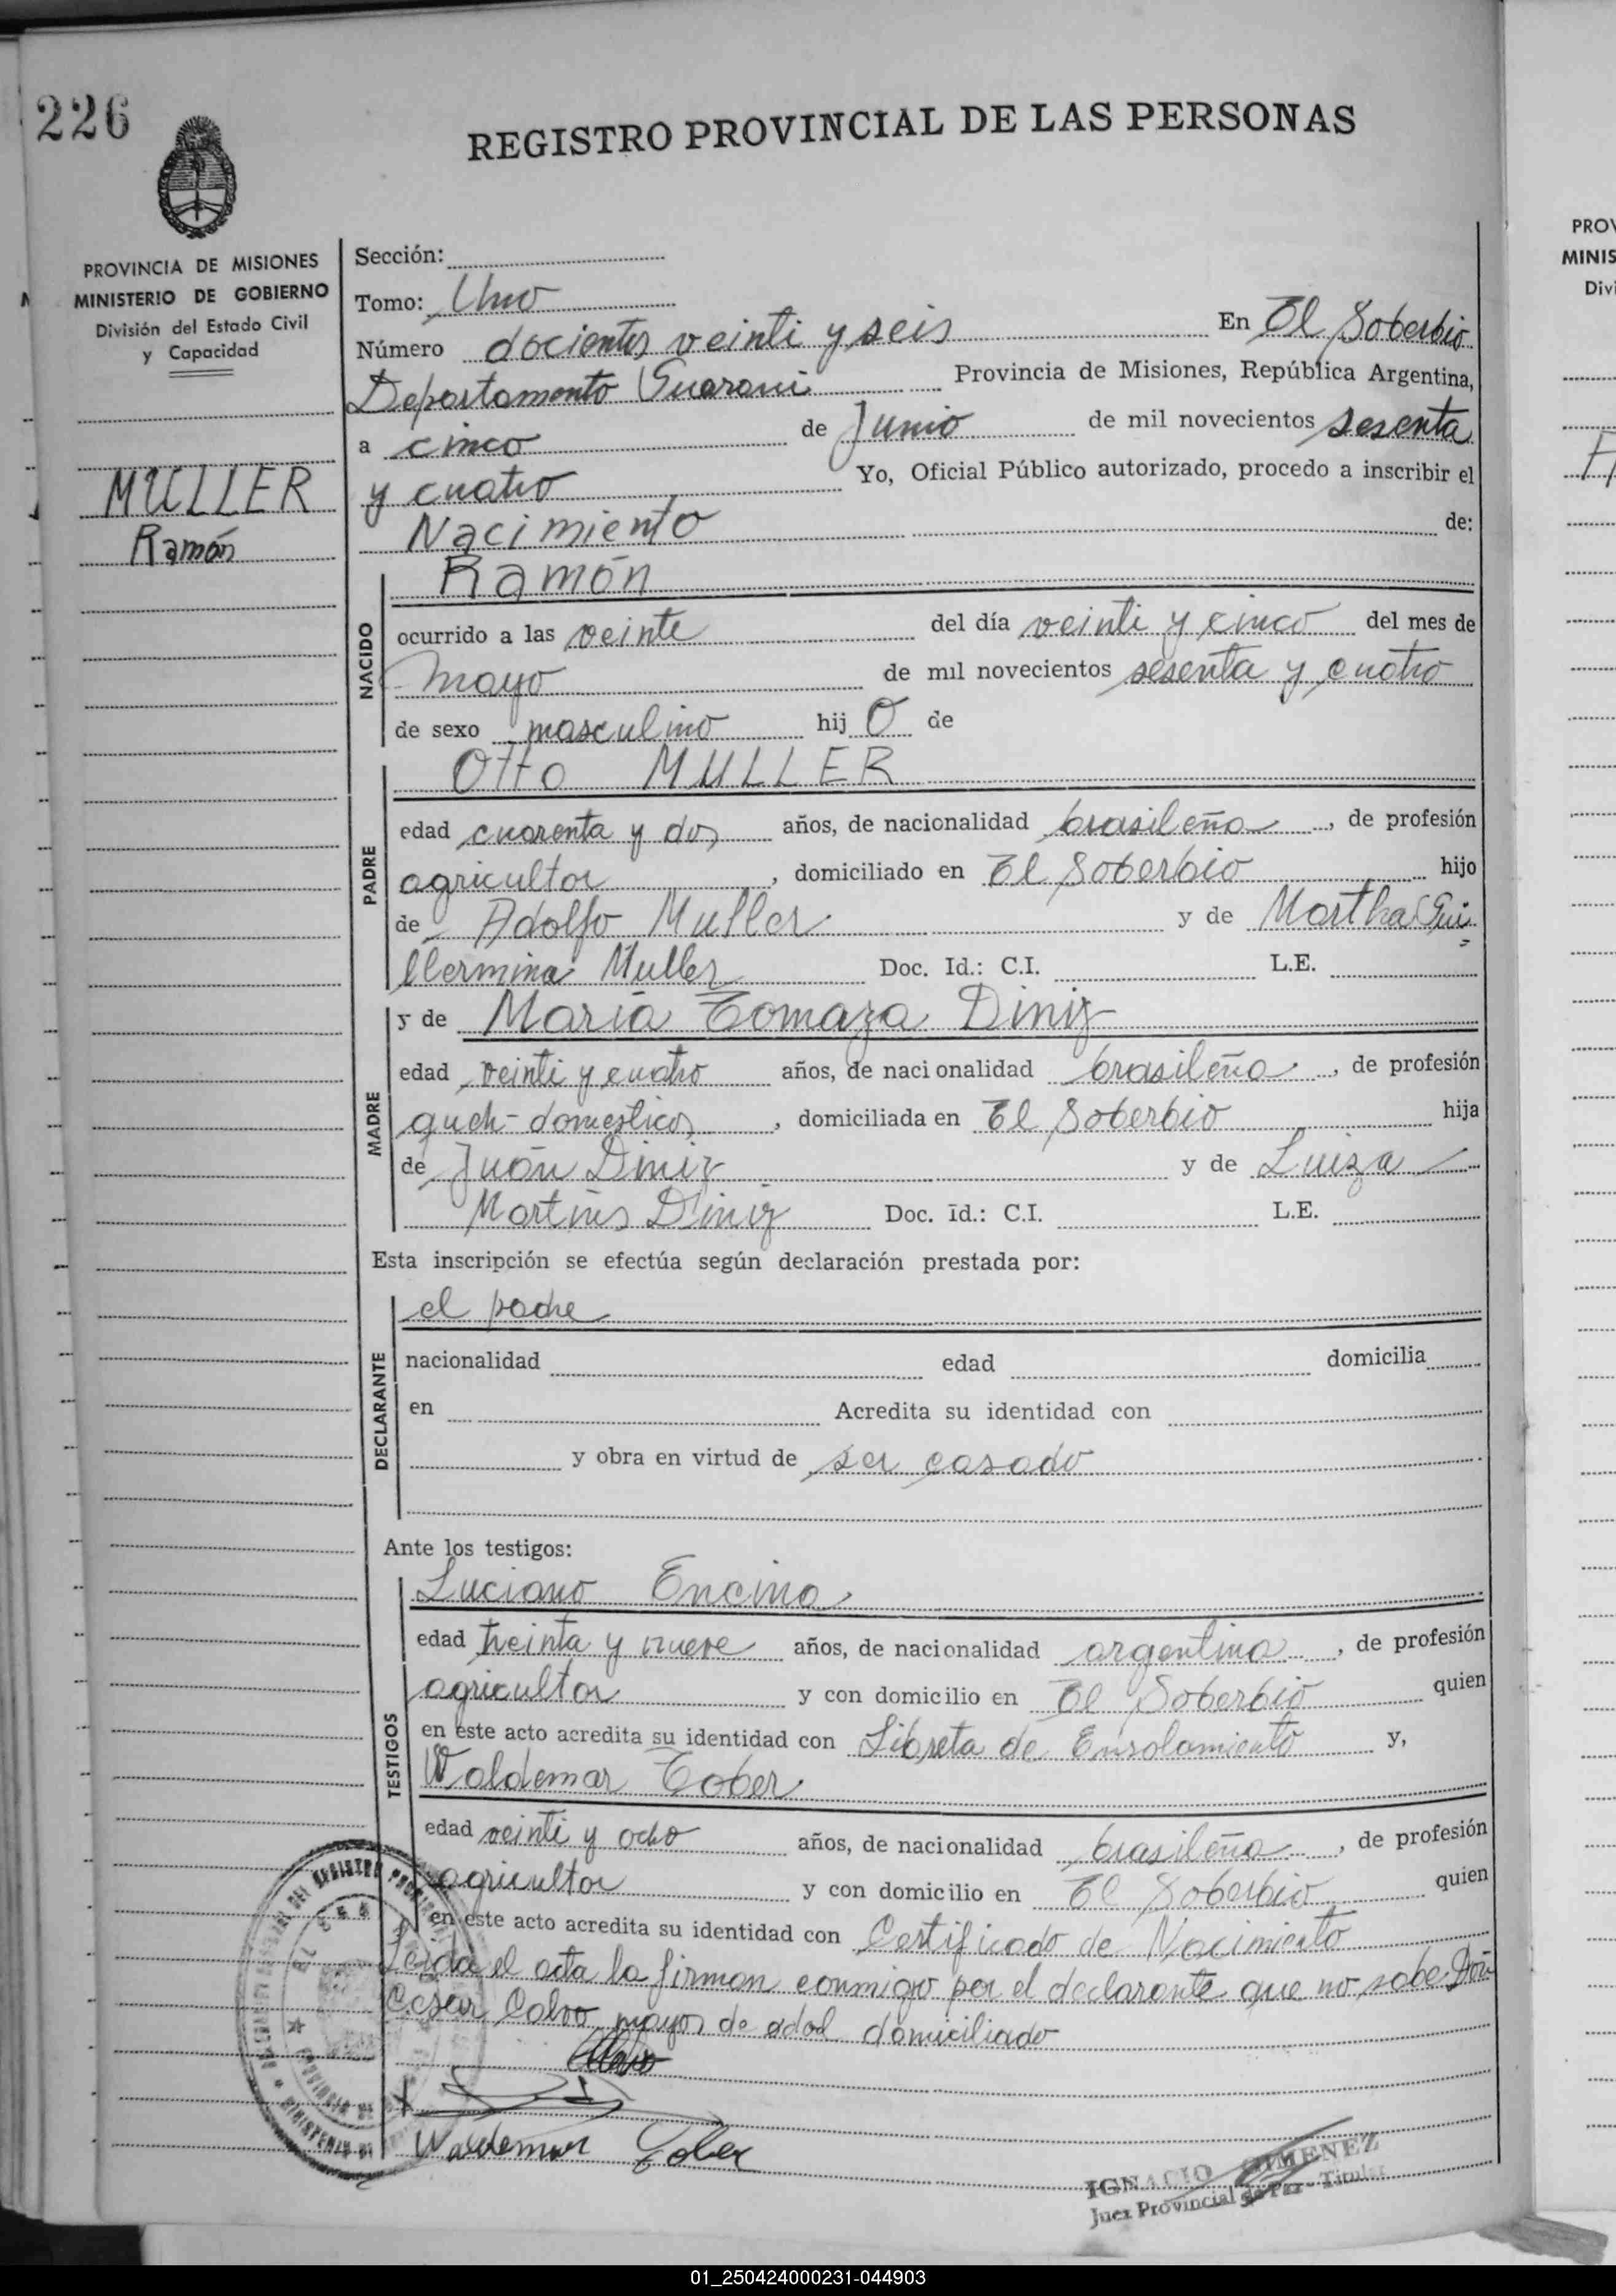 226
REGISTRO PROVINCIAL DE LAS PERSONAS
PROVINCIA DE MISIONES
MINISTERIO DE GOBIERNO
División del Estado Civil
y Capacidad
MULLER
Ramón
Sección:
Tomo: Uno
Número docientos veinti y seis En El Soberbio
Departamento Guarani Provincia de Misiones, República Argentina,
a cinco de Junio de mil novecientos sesenta
y cuatro Yo, Oficial Público autorizado, procedo a inscribir el
Nacimiento de:
Ramón
NACIDO
ocurrido a las veinte del día veinti y cinco del mes de
mayo de mil novecientos sesenta y cuatro
de sexo masculino hij O de
Otto MULLER
PADRE
edad cuarenta y dos años, de nacionalidad brasileña, de profesión
agricultor, domiciliado en El Soberbio hijo
de Adolfo Muller y de Martha Gui
llermina Muller Doc. Id.: C.I. L.E.
y de Maria Tomaza Diniz
MADRE
edad veinti y cuatro años, de nacionalidad brasileña, de profesión
queh-domesticos, domiciliada en El Soberbio hija
de Juán Diniz y de Luiza
Martins Diniz Doc. Id.: C.I. L.E.
Esta inscripción se efectúa según declaración prestada por:
el padre
DECLARANTE
nacionalidad edad domicilia
en Acredita su identidad con
y obra en virtud de ser casado
Ante los testigos:
Luciano Encina
TESTIGOS
edad treinta y nueve años, de nacionalidad argentina, de profesión
agricultor y con domicilio en El Soberbio quien
en este acto acredita su identidad con Libreta de Enrolamiento y,
Woldemar Tober
edad veinti y ocho años, de nacionalidad brasileña, de profesión
agricultor y con domicilio en El Soberbio quien
en este acto acredita su identidad con Certificado de Nacimiento
Leida el acta la firman conmigo por el declarante que no sabe Don
Cesar Calvo mayor de edad domiciliado
Waldemar Tober
IGNACIO GIMENEZ
Juez Provincial de Paz-Titular
PROV
MINIS
Divi
01_250424000231-044903